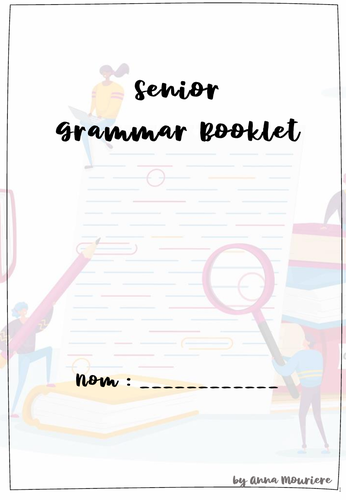 Senior
Grammar Booklet
Nom : _ _ _ _ _ _ _ _ _ _ _ _ _
by Anna Mouriere